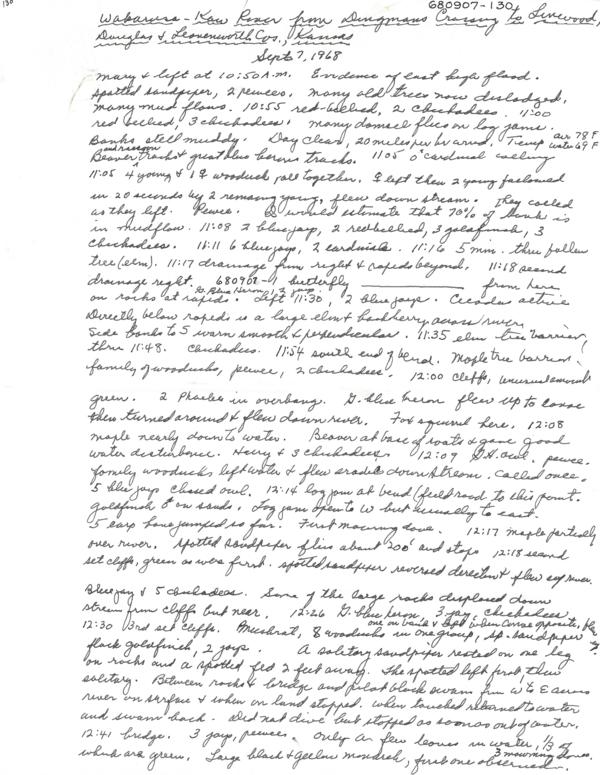 680907-130
130
Wakarusa - Kaw River from Dingmans Crossing to Linwood,
Douglas & Leavenworth Cos., Kansas
Sept 7, 1968
Mary & left at 10:50 A.M. Evidence of east high flood.
Spotted sandpiper, 2 pewees. Many old trees now dislodged,
many mud flows. 10:55 red-bellied, 2 chickadees. 11:00
red bellied, 3 chickadees. Many damsel flies on log jams.
Banks still muddy. Day clear, 20 miles per hr wind. Temp air 78 F water 69 F
Beaver and raccoon tracks & great blue heron tracks. 11:05 cardinal calling
11:05 4 young & 1 ♀ woodduck all together. ♀ left then 2 young followed
in 20 seconds by 2 remaining young, flew down stream. They called
as they left. Pewee. I would estimate that 70% of bank is
in mudflow. 11:08 2 blue jay, 2 red bellied, 3 goldfinch, 3
chickadees. 11:11 6 blue jay, 2 cardinals. 11:16 5 min. thru fallen
tree (elm). 11:17 drainage from right & rapids beyond. 11:18 second
drainage right. 680907-1 butterfly from here
on rocks at rapids. G. Blue Heron, 2 jays. Left 11:30, 2 blue jays. Cicadas active
Directly below rapids is a large elm & hackberry across river.
Side banks to 5 warm smooth & perpendicular. 11:35 elm tree barrier,
thru 11:48. Chickadees. 11:54 south end of bend. Maple tree barrier.
family of wooducks, pewee, 2 chickadees. 12:00 cliffs, unusual amount
green. 2 Phoebes in overhang. G. blue heron flew up to canoe
then turned around & flew down river. Fox squirrel here. 12:08
maple nearly down to water. Beaver at base of roots & gave good
water disturbance. Hairy & 3 chickadees. 12:09 G.H. owl. pewee.
family wooducks left water & flew down stream. Called once.
5 blue jays chased owl. 12:14 log jam at bend (field road to this point.
goldfinch ♂ on sands. Log jam open to W but usually to east.
5 carp have jumped so far. First mourning dove. 12:17 maple partially
over river. Spotted sandpiper flies about 200' and stops 12:18 second
set cliffs, green as were first. Spotted sandpiper reversed direction & flew up river.
Blue jay & 5 chickadees. Some of the large rocks displaced down
stream from cliffs but near. 12:26 G. blue heron, 3 jay, chickadees.
12:30 3rd set cliffs. Muskrat, one on bank & left when canoe opposite, 8 wooducks in one group, sp. sandpiper
flock goldfinch, 2 jays. A solitary sandpiper rested on one leg
on rocks and a spotted fed 2 feet away. The spotted left first, then
solitary. Between rocks & bridge and pilot black swam from W to E across
river on surface & when on land stopped. when touched returned to water
and swam back. Did not dive but stopped as soon as out of water.
12:41 bridge. 3 jays, pewees. Only a few leaves in water, 1/3 of
which are green. 3 mourning doves. Large black & yellow first one observed.